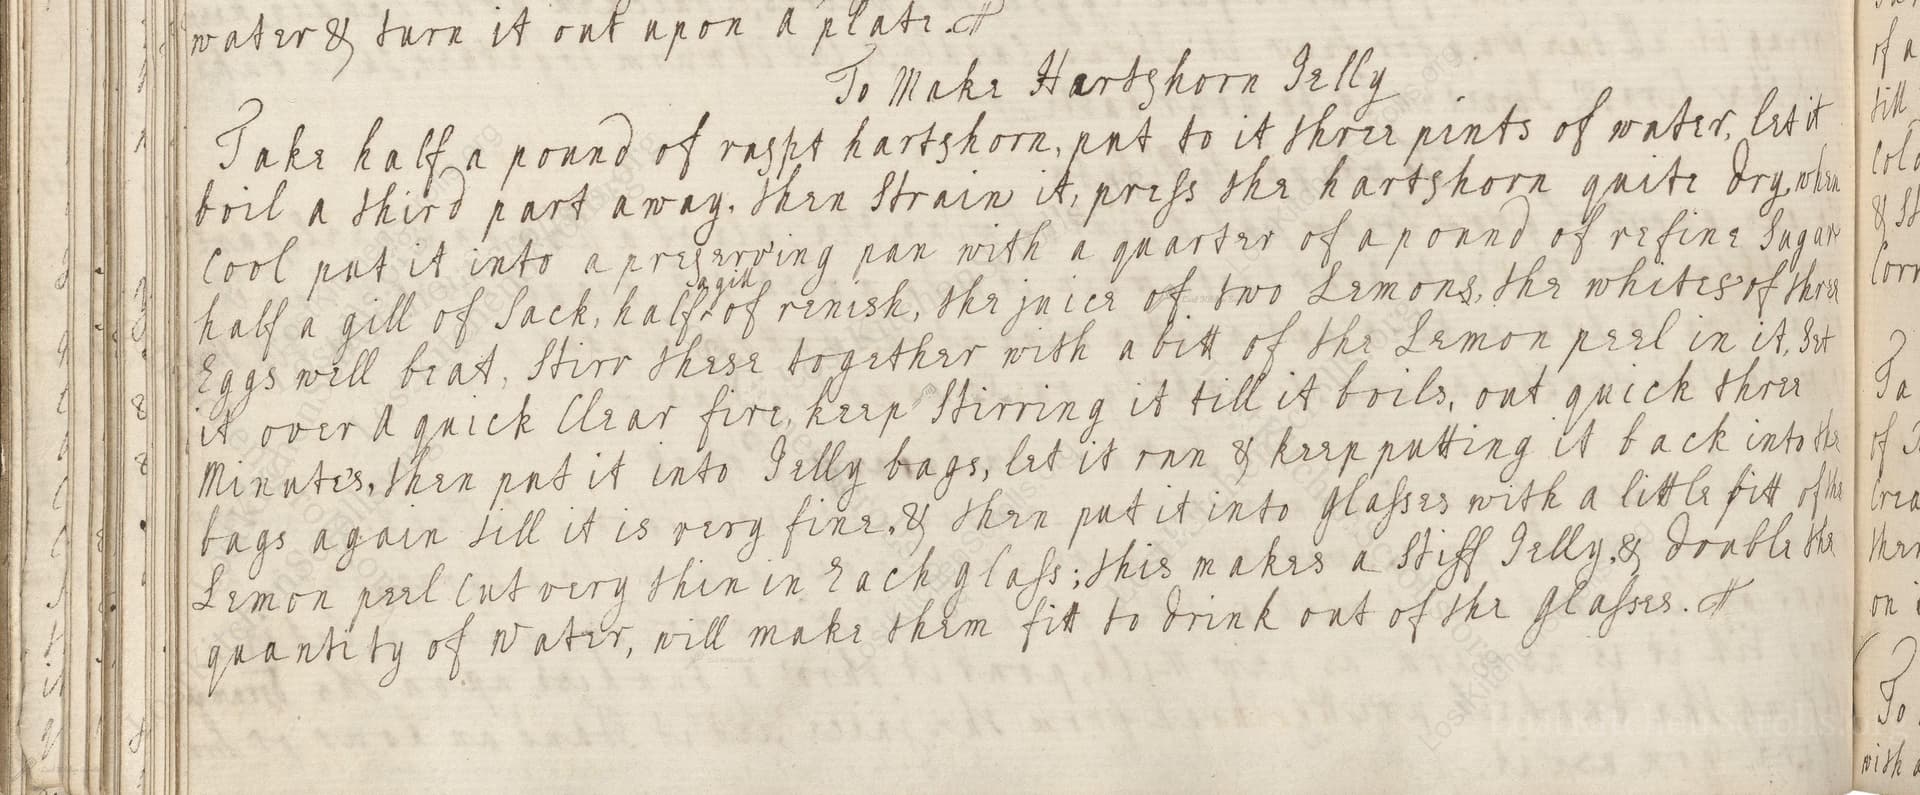 water & turn it out upon a plate.
To Make Hartshorn Jelly
Take half a pound of raspt hartshorn, put to it three pints of water, let it
boil a third part away. then Strain it, press the hartshorn quite dry, when
Cool put it into a preserving pan with a quarter of a pound of refine Sugar
half a gill of Sack, half a gill of renish, the juice of two Lemons, the whites of three
Eggs well beat, Stirr these together with a bitt of the Lemon peel in it, Set
it over a quick Clear fire, keep Stirring it till it boils, out quick three
Minutes, then put it into Jelly bags, let it run & keep putting it back into the
bags again till it is very fine, & then put it into glasses with a little bitt of the
Lemon peel Cut very thin in Each glass; this makes a Stiff Jelly, & double the
quantity of Water, will make them fitt to drink out of the glasses.
of a
till
Cold
Ta
of
on
To
with a